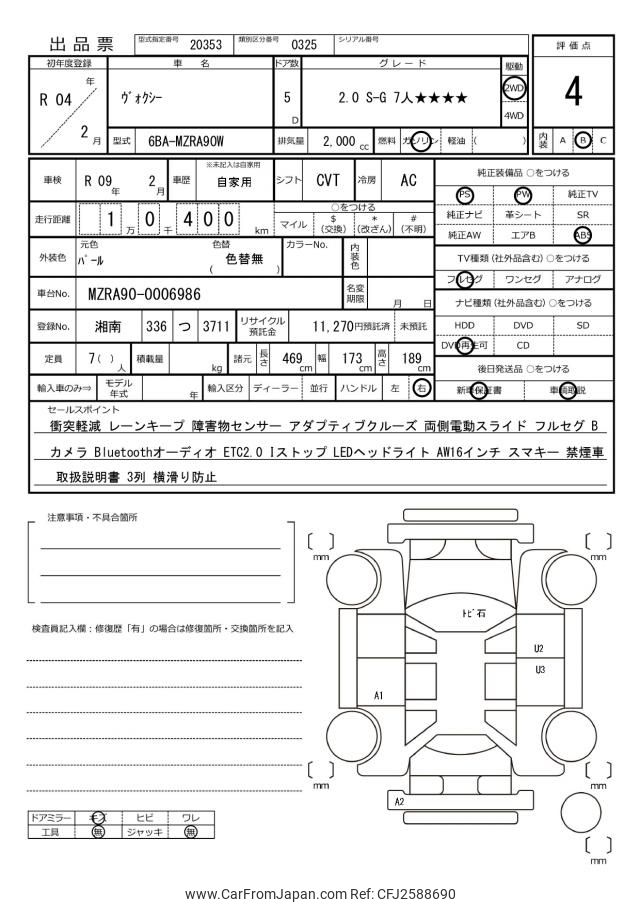 出品票 型式指定番号 20353 類別区分番号 0325 シリアル番号
評価点
4
内装 A B C
初年度登録 車名 ドア数 グレード 駆動
R 04 年 2 月
ヴォクシー 5 D 2.0 S-G 7人★★★★ 2WD 4WD
型式 6BA-MZRA90W 排気量 2,000 cc 燃料 ガソリン 軽油 ( )
車検 R 09 年 2 月 車歴 ※未記入は自家用 自家用 シフト CVT 冷房 AC
走行距離 1 万 0 千 4 0 0 km
○をつける
マイル $ (交換) * (改ざん) # (不明)
外装色 元色 パール 色替 ( 色替無 ) カラーNo. 内装色
車台No. MZRA90-0006986 名変期限 月 日
登録No. 湘南 336 つ 3711 リサイクル預託金 11,270円預託済 未預託
定員 7( ) 人 積載量 kg 諸元 長さ 469 cm 幅 173 cm 高さ 189 cm
輸入車のみ⇒ モデル年式 年 輸入区分 ディーラー 並行 ハンドル 左 右
純正装備品 ○をつける
PS PW 純正TV
純正ナビ 革シート SR
純正AW エアB ABS
TV種類(社外品含む) ○をつける
フルセグ ワンセグ アナログ
ナビ種類(社外品含む) ○をつける
HDD DVD SD
DVD再生可 CD
後日発送品 ○をつける
新車保証書 車輌取説
セールスポイント
衝突軽減 レーンキープ 障害物センサー アダプティブクルーズ 両側電動スライド フルセグ B
カメラ Bluetoothオーディオ ETC2.0 Iストップ LEDヘッドライト AW16インチ スマキー 禁煙車
取扱説明書 3列 横滑り防止
注意事項・不具合箇所
検査員記入欄：修復歴「有」の場合は修復箇所・交換箇所を記入
ドアミラー キズ ヒビ ワレ
工具 無 ジャッキ 無
mm
mm
トビ石
U2
U3
A1
mm
mm
A2
mm
www.CarFromJapan.com Ref: CFJ2588690